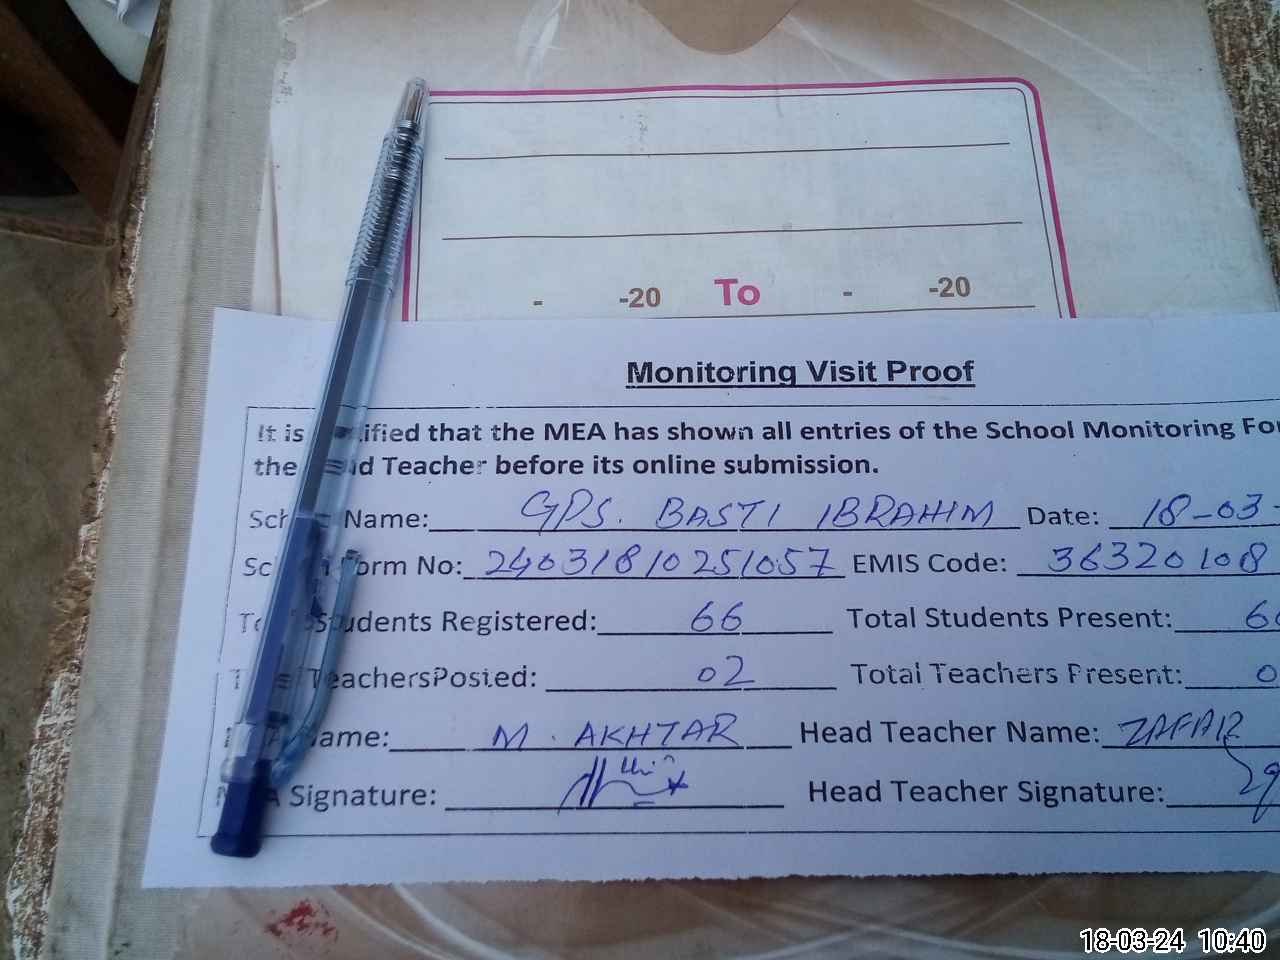 - -20 To - -20
Monitoring Visit Proof
It is ified that the MEA has shown all entries of the School Monitoring Fo
the d Teacher before its online submission.
Sch Name: GPS. BASTI IBRAHIM Date: 18-03-
Sc orm No: 24031810251057 EMIS Code: 36320108
To Students Registered: 66 Total Students Present: 6
T TeachersPosted: 02 Total Teachers Present: 0
Name: M. AKHTAR Head Teacher Name: ZAFAR
A Signature: Head Teacher Signature:
18-03-24 10:40